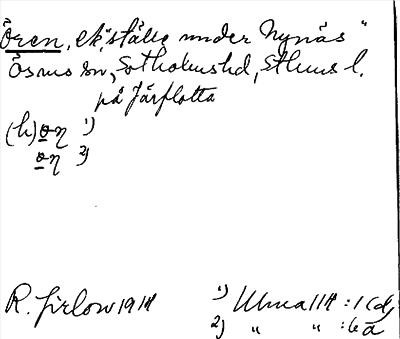 Ören, ek.ställe under Nynäs"
Ösmo sn, Sotholms hd, Sthms l.
på Järflotta
(h)ɵη 1)
ɵη 2)
R. Jirlow 1914 1) Ulma 114:1 (d)
2) " " :6 a